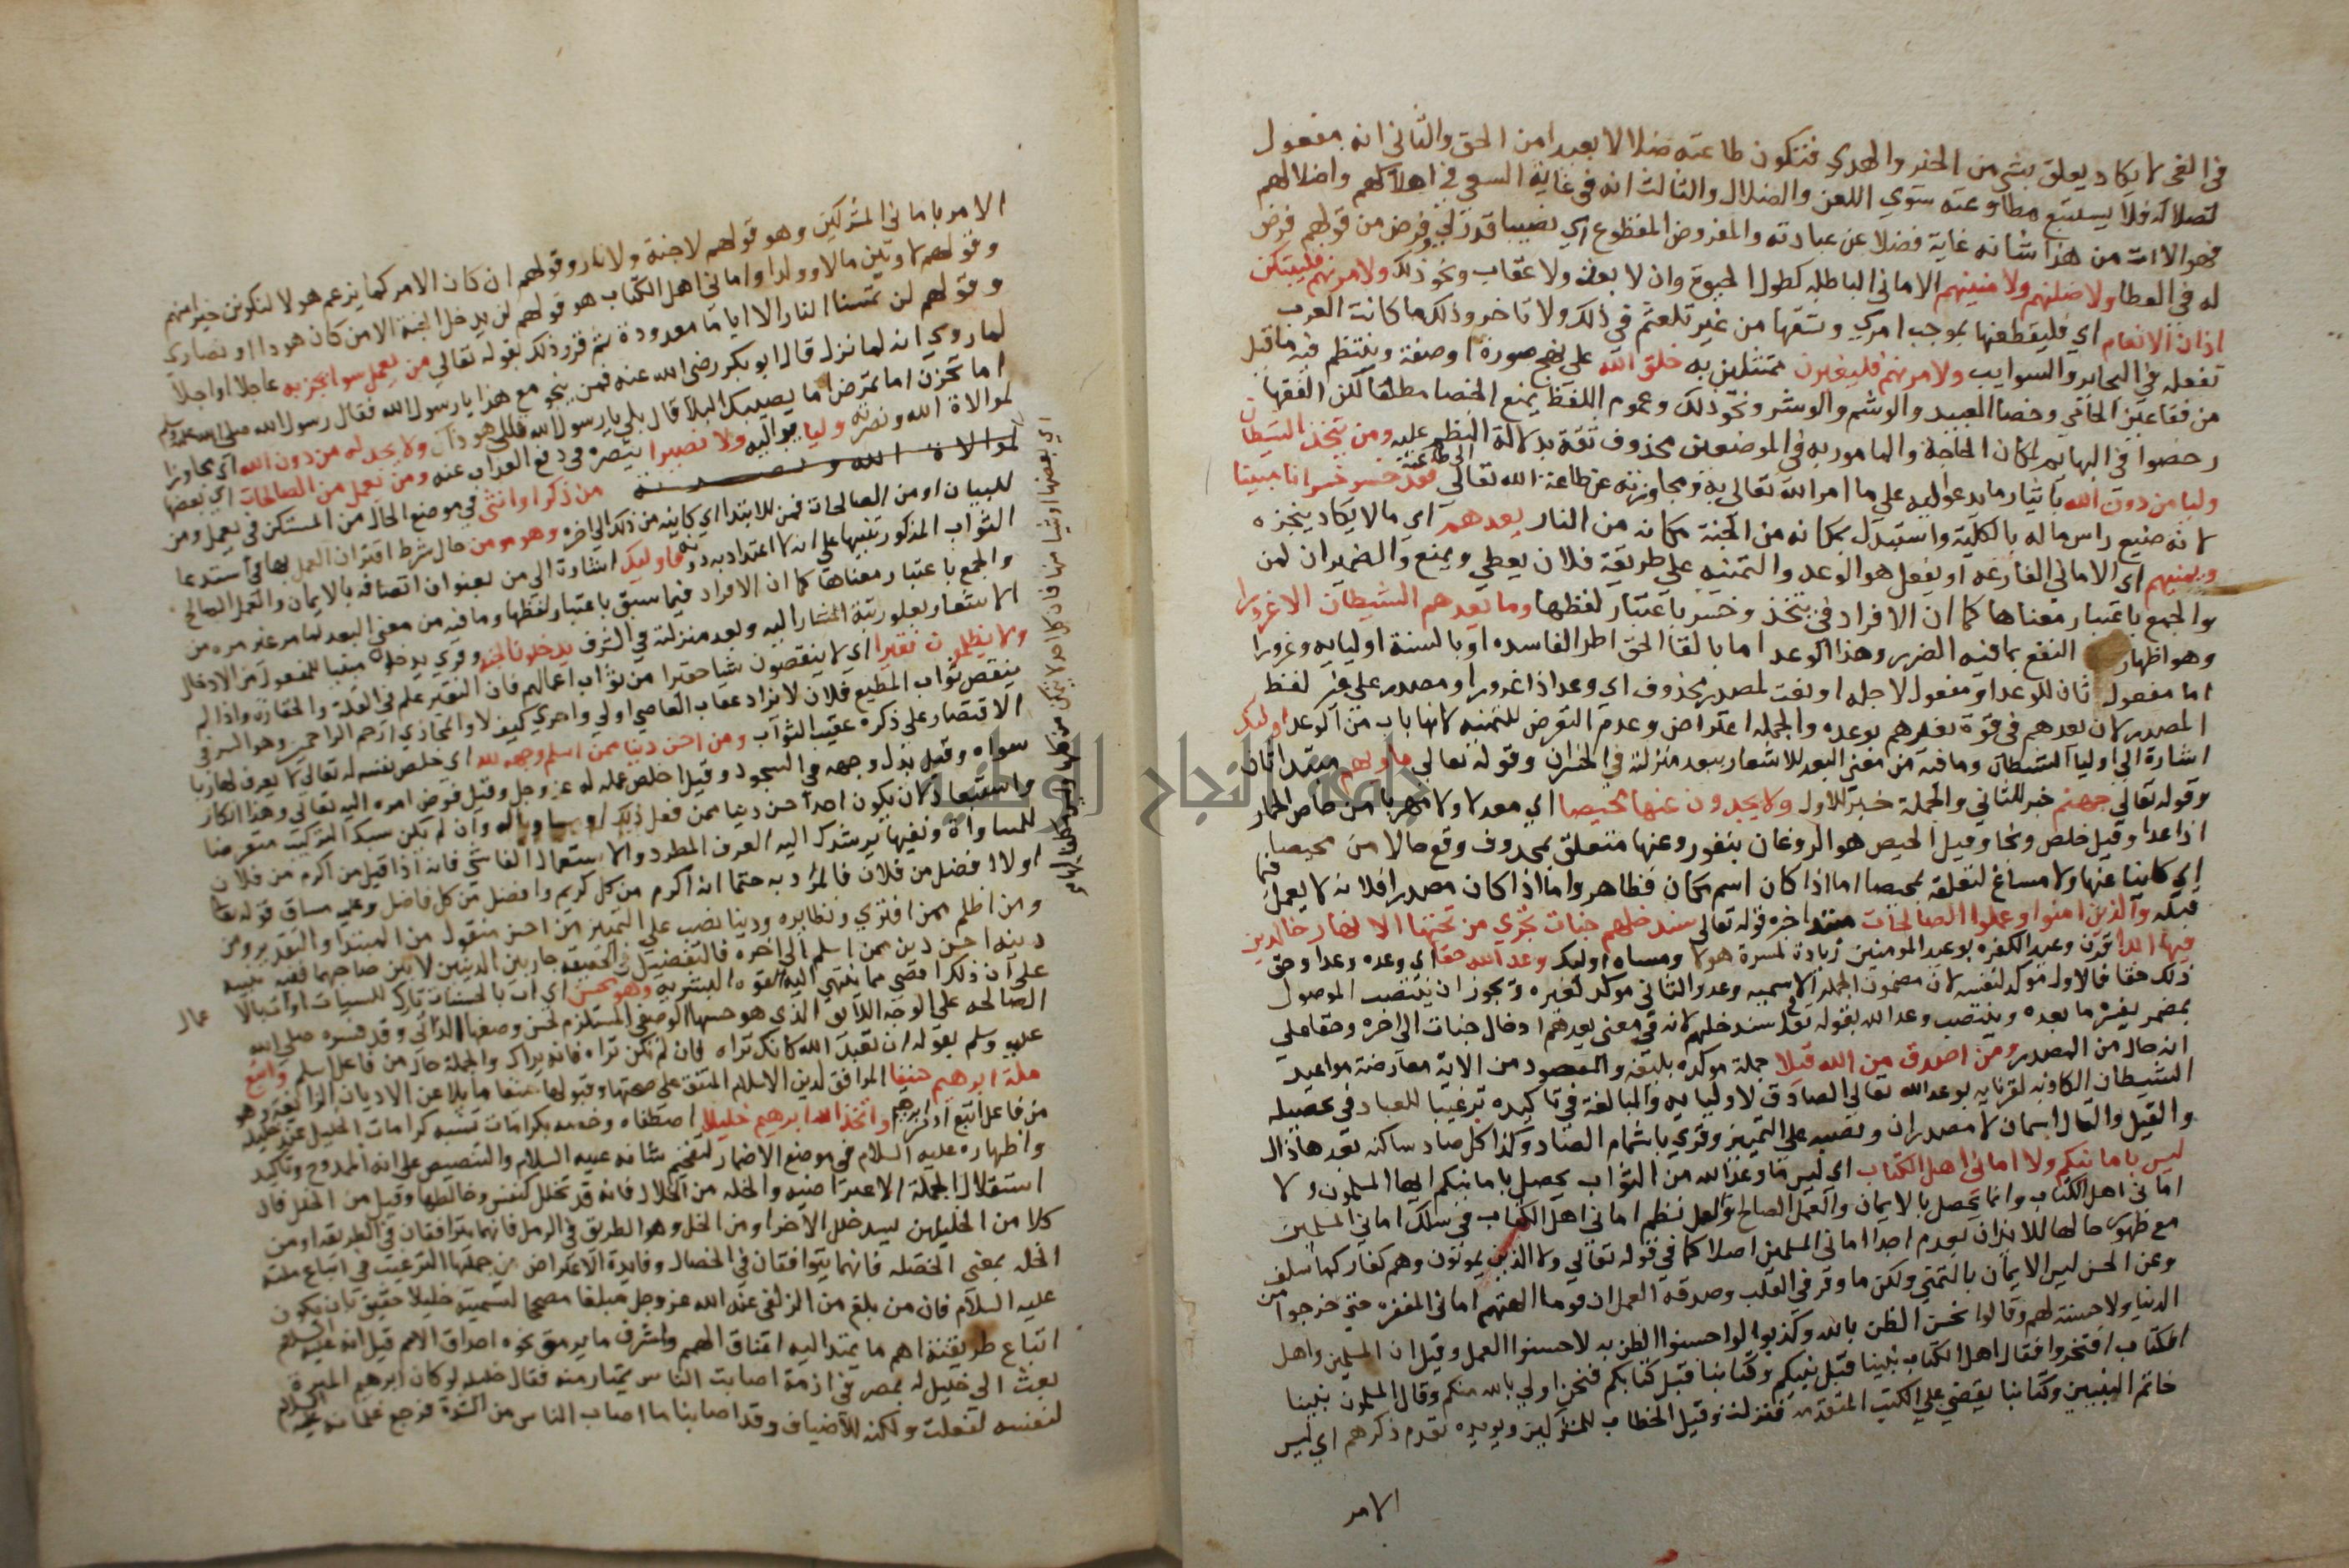 في الغي لا يكاد يعلق بشي من الخير والهدي فتكون طاعته ضلالا بعيدا من الحق والثاني انه مفعول
لضلاله فلا يستتبع مطاوعته سوي اللعن والضلال والثالث انه في غاية السعي في اهلاكهم واضلالهم
فموالات من هذا شانه غاية فضلا عن عبادته والمفروض المقطوع اي نصيبا قدر لي وفرض من قولهم فرض
له في العطا ولاضلنهم ولامنينهم الاماني الباطلة كطول الحيوة وان لا بعث ولا عقاب ونحو ذلك ولامرنهم فليبتكن
اذان الانعام اي فليقطعنها بموجب امري وشقها من غير تلعثم في ذلك ولا تاخر وذلك ما كانت العرب
تفعله في البحاير والسوايب ولامرنهم فليغيرن ممتثلين به خلق الله علي نهج صورة او صفة وينتظم فيه ما قيل
من فقا عين الحامي وخصا العبيد والوشم والوشر ونحو ذلك وعموم اللفظ يمنع الخصا مطلقا لكن الفقها
رخصوا في البهايم لمكان الحاجة والمامور به في الموضعين محذوف ثقة بدلالة النظم عليه ومن يتخذ الشيطان
وليا من دون الله بايثار ما يدعو اليه علي ما امر الله تعالي به ومجاوزته عن طاعة الله تعالي الي طاعته فقد خسر خسرانا مبينا
لانه ضيع راس ماله بالكلية واستبدل بمكانه من الجنة مكانه من النار يعدهم اي ما لا يكاد ينجزه
ويمنيهم اي الاماني الفارغة او يفعل هو الوعد والتمنية علي طريقة فلان يعطي ويمنع والضميران لمن
والجمع باعتبار معناها كما ان الافراد في يتخذ وخسر باعتبار لفظها وما يعدهم الشيطان الا غرورا
وهو اظهار النفع بما فيه الضرر وهذا الوعد اما بالقا الخواطر الفاسدة او بالسنة اوليايه وغرورا
اما مفعول ثان للوعد او مفعول لاجله او نعت لمصدر محذوف اي وعدا ذا غرور او مصدر علي غير لفظ
المصدر لان يعدهم في قوة يغرهم بوعده والجملة اعتراض وعدم التعرض للتمنية لانها باب من الوعد اوليك
اشارة الي اوليا الشيطان وما فيه من معني البعد للاشعار ببعد منزلتهم في الخسران وقوله تعالي ماواهم مبتدا ثان
وقوله تعالي جهنم خبر للثاني والجملة خبر للاول ولا يجدون عنها محيصا اي معدلا ولا مهربا من حاص الحمار
اذا عدا وقيل خلص ونجا وقيل المحيص هو الروغان بنفور وعنها متعلق بمحذوف وقع حالا من محيصا
اي كاينا عنها ولا مساغ لتعلقه بمحيصا اما اذا كان اسم مكان فظاهر واما اذا كان مصدرا فلانه لا يعمل فيما
قبله والذين امنوا وعملوا الصالحات مبتدا خبره قوله تعالي سندخلهم جنات تجري من تحتها الانهار خالدين
فيها ابدا قرن وعيد الكفرة بوعد المومنين زيادة لمسرة هولا ومساة اوليك وعد الله حقا اي وعده وعدا وحق
ذلك حقا فالاول موكد لنفسه لان مضمون الجملة الاسمية وعد والثاني موكد لغيره ويجوز ان ينتصب الموصول
بمضمر يفسره ما بعده وينتصب وعد الله بقوله تعالي سندخلهم لانه في معني يعدهم ادخال جنات الي اخره وحقا علي
انه حال من المصدر ومن اصدق من الله قيلا جملة موكدة بليغة والمقصود من الاية معارضة مواعيد
الشيطان الكاذبة لقرنايه بوعد الله تعالي الصادق لاوليايه والمبالغة في تاكيده ترغيبا للعباد في تحصيله
والقيل والقال اسمان لا مصدران ونصبه علي التمييز وقري باشمام الصاد وكذا كل صاد ساكنة بعدها دال
ليس بامانيكم ولا اماني اهل الكتاب اي ليس ما وعد الله من الثواب يحصل بامانيكم ايها المسلمون ولا
اماني اهل الكتاب وانما يحصل بالايمان والعمل الصالح ولعل نظم اماني اهل الكتاب في سلك اماني المسلمين
مع ظهور حالها للايذان بعدم اجدا اماني المسلمين اصلا كما في قوله تعالي ولا الذين يموتون وهم كفار كما سلف
وعن الحسن ليس الايمان بالتمني ولكن ما وقر في القلب وصدقه العمل ان قوما الهتهم اماني المغفرة حتي خرجوا من
الدنيا ولا حسنة لهم وقالوا نحسن الظن بالله وكذبوا لو احسنوا الظن به لاحسنوا العمل وقيل ان المسلمين واهل
الكتاب افتخروا فقال اهل الكتاب نبينا قبل نبيكم وكتابنا قبل كتابكم فنحن اولي بالله منكم وقال المسلمون نبينا
خاتم النبيين وكتابنا يقضي علي الكتب المتقدمة فنزلت وقيل الخطاب للمشركين ويويده تقدم ذكرهم اي ليس
الامر
الامر باماني المشركين وهو قولهم لا جنة ولا نار وقولهم ان كان الامر كما يزعم هولا لنكونن خيرا منهم
وقولهم لاوتين مالا وولدا واماني اهل الكتاب هو قولهم لن يدخل الجنة الا من كان هودا او نصاري
وقولهم لن تمسنا النار الا اياما معدودة ثم قرر ذلك بقوله تعالي من يعمل سوا يجز به عاجلا او اجلا
لما روي انه لما نزل قال ابو بكر رضي الله عنه فمن ينجو مع هذا يا رسول الله فقال رسول الله صلي الله عليه وسلم
اما تحزن اما تمرض اما يصيبك البلا قال بلي يا رسول الله قال هو ذاك ولا يجد له من دون الله اي مجاوزا
لموالاة الله ونصرته وليا يواليه ولا نصيرا ينصره في دفع العذاب عنه ومن يعمل من الصالحات اي بعضها
لموالاة الله ونصرته من ذكر او انثي في موضع الحال من المستكن في يعمل ومن
للبيان او من الصالحات فمن للابتدا اي كاينة من ذكر الي اخره وهو مومن حال شرط اقتران العمل بها في استدعا
الثواب المذكور تنبيها علي انه لا اعتداد به دونه فاوليك اشارة الي من بعنوان اتصافه بالايمان والعمل الصالح
والجمع باعتبار معناها كما ان الافراد فيما سبق باعتبار لفظها وما فيه من معني البعد لما مر غير مرة من
الاشعار بعلو رتبة المشار اليه وبعد منزلته في الشرف يدخلون الجنة وقري يدخلون مبنيا للمفعول من الادخال
ولا يظلمون نقيرا اي لا ينقصون شيا حقيرا من ثواب اعمالهم فان النقير علم في القلة والحقارة واذا لم
ينقص ثواب المطيع فلان لا يزاد عقاب العاصي اولي واحري كيف لا والمجازي ارحم الراحمين وهو السر في
الاقتصار علي ذكره عقيب الثواب ومن احسن دينا ممن اسلم وجهه لله اي خلص نفسه له تعالي لا يعرف لها ربا
سواه وقيل بذل وجهه في السجود وقيل اخلص عمله له عز وجل وقيل فوض امره اليه تعالي وهذا انكار
واستبعاد لان يكون احد احسن دينا ممن فعل ذلك او مساويا له وان لم يكن سبك التركيب متعرضا
للمساواة ونفيها يرشدك اليه العرف المطرد والاستعمال الفاشي فانه اذا قيل من اكرم من فلان
او لا افضل من فلان فالمراد به حتما انه اكرم من كل كريم وافضل من كل فاضل وعليه مساق قوله تعالي
ومن اظلم ممن افتري ونظايره ودينا نصب علي التمييز من احسن منقول من المبتدا والتقدير ومن
دينه احسن من دين من اسلم الي اخره فالتفضيل في الحقيقة جار بين الدينين لا بين صاحبيهما ففيه تنبيه
علي ان ذلك اقصي ما ينتهي اليه القوة البشرية وهو محسن اي ات بالحسنات تارك للسيات او ات بالاعمال
الصالحة علي الوجه اللايق الذي هو حسنها الوصفي المستلزم لحسن وصفها الذاتي وقد فسره صلي الله
عليه وسلم بقوله ان تعبد الله كانك تراه فان لم تكن تراه فانه يراك والجملة حال من فاعل اسلم واتبع
ملة ابرهيم حنيفا الموافق لدين الاسلام المتفق علي صحتها وقبولها حنيفا مايلا عن الاديان الزايغة وهو حال
من فاعل اتبع او من ابرهيم واتخذ الله ابرهيم خليلا اصطفاه وخصه بكرامات تشبه كرامات الخليل عند خليله
واظهاره عليه السلام في موضع الاضمار لتفخيم شانه عليه السلام والتنصيص علي انه الممدوح وتاكيد
استقلال الجملة الاعتراضية والخلة من الخلال فانه قد تخلل النفس وخالطها وقيل من الخلل فان
كلا من الخليلين يسد خلل الاخر او من الخل وهو الطريق في الرمل فانهما يتوافقان في الطريقة او من
الخلة بمعني الخصلة فانهما يتوافقان في الخصال وفايدة الاعتراض من جملتها الترغيب في اتباع ملته
عليه السلام فان من بلغ من الزلفي عند الله عز وجل مبلغا مصححا لتسميته خليلا حقيق بان يكون
اتباع طريقته اهم ما يمتد اليه اعناق الهمم واشرف ما يرمق نحوه احداق الامم قيل انه عليه السلام
بعث الي خليل له بمصر في ازمة اصابت الناس يمتار منه فقال خليله لو كان ابرهيم الميرة
لنفسه لفعلت ولكنه للاضياف وقد اصابنا ما اصاب الناس من الشدة فرجع غلمانه عليه السلام
اي بعضها او شيا منها فان كل احد لا يتمكن من كلها وليس مكلفا بها
جامعة النجاح الوطنية